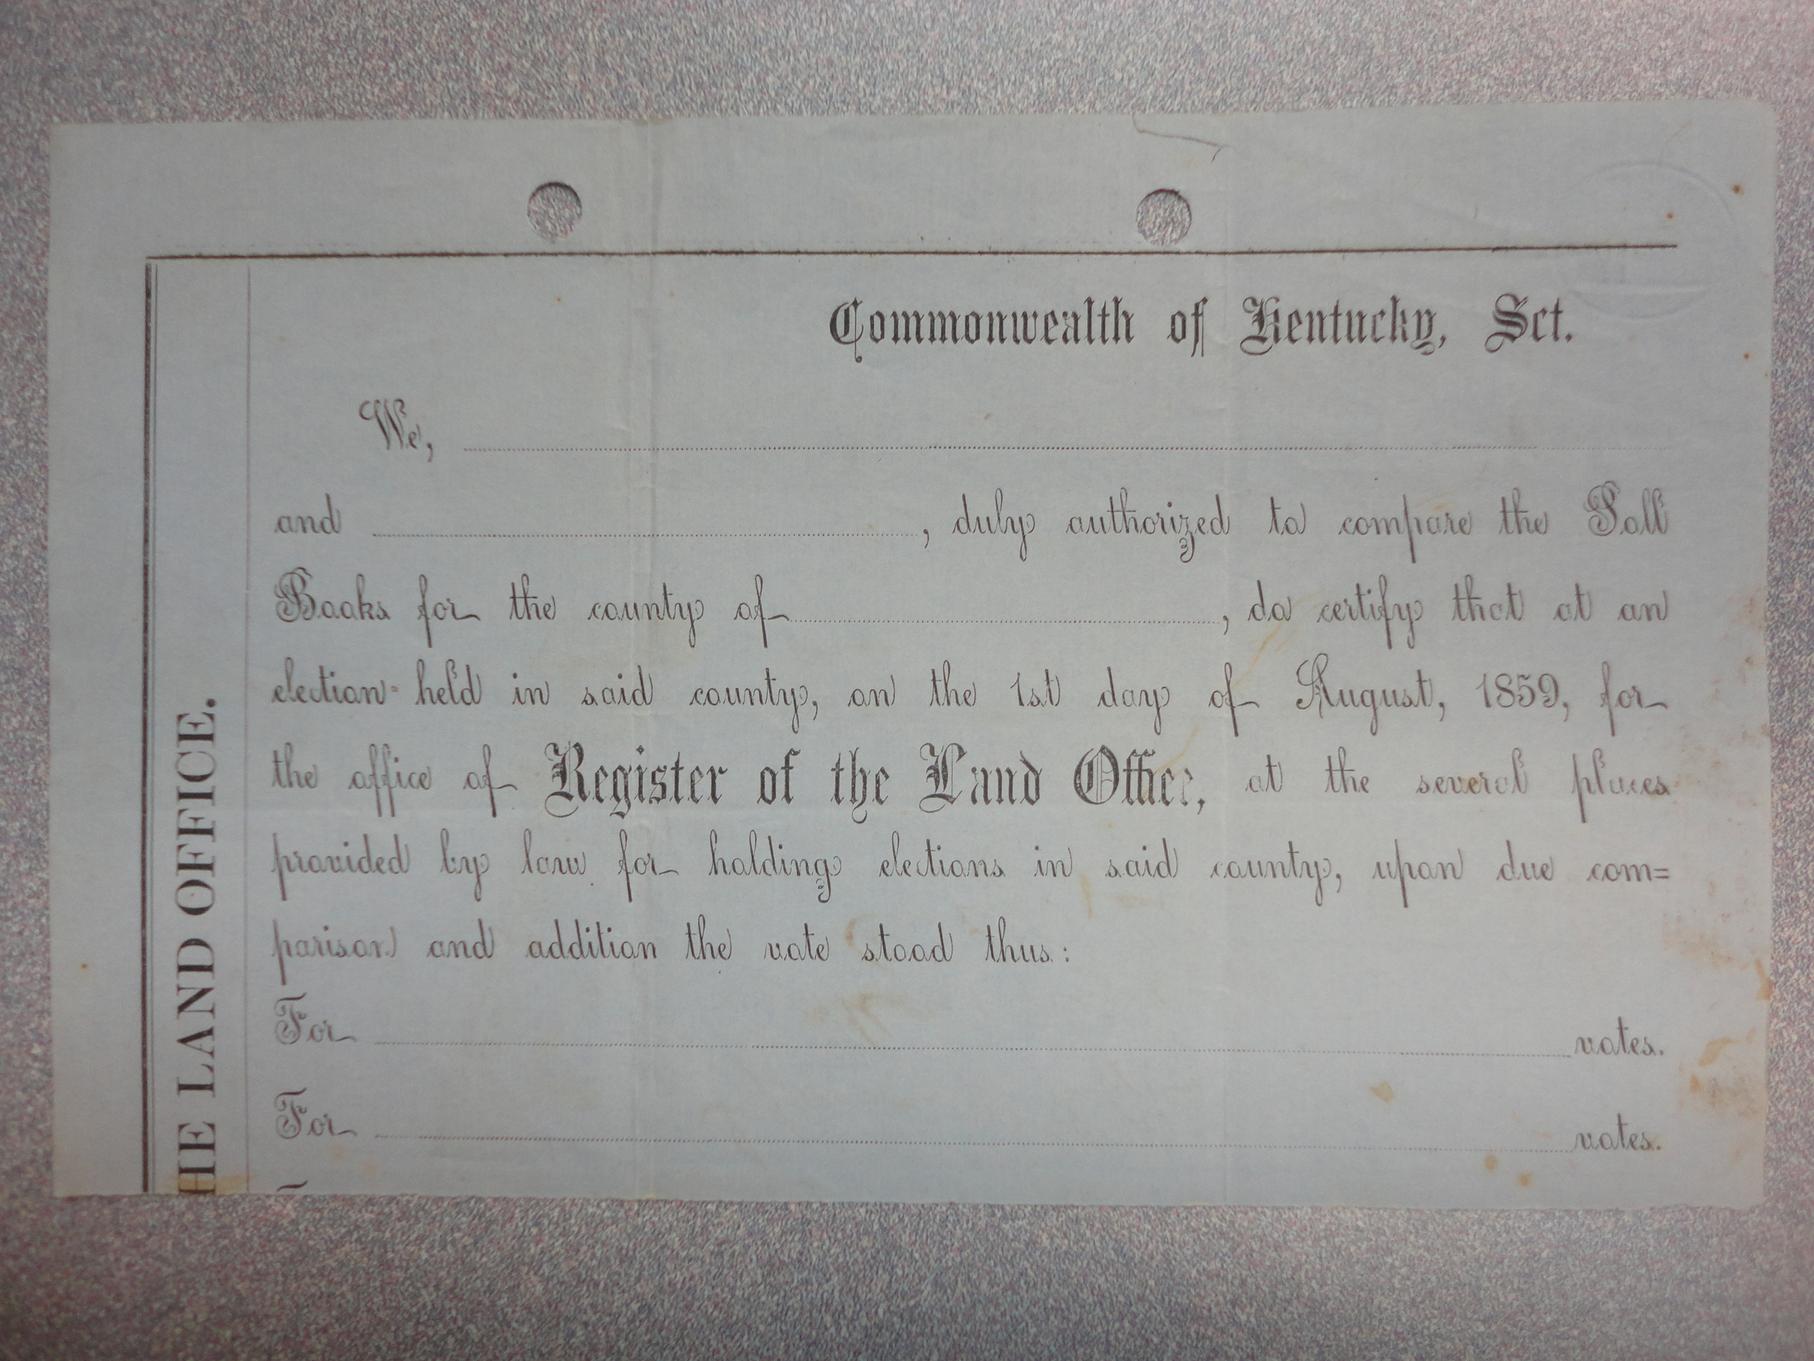 Commonwealth of Kentucky, Sct.
We,
and , duly authorized to compare the Poll
Books for the county of , do certify that at an
election held in said county, on the 1st day of August, 1859, for
the office of Register of the Land Office, at the several places
provided by law for holding elections in said county, upon due com=
parison and addition the vote stood thus:
For votes.
For votes.
HE LAND OFFICE.